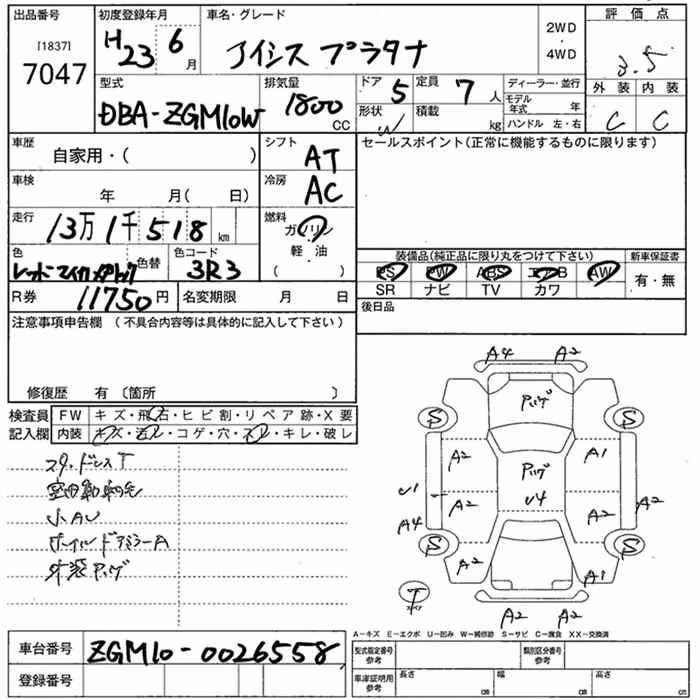 出品番号 初度登録年月 車名・グレード 評価点
[1837] 7047
H23 6月 アイシス プラタナ 2WD・4WD 3.5
型式 排気量 ドア 定員 ディーラー・並行 外装 内装
DBA-ZGM10W 1800CC 5 7人 モデル年式 年 C C
形状 W 積載 kg ハンドル 左・右
車歴 シフト セールスポイント(正常に機能するものに限ります)
自家用・( ) AT
車検 冷房
年 月( 日) AC
走行 燃料
13万1千518km ガソリン
軽油
( )
色 色替 色コード 装備品(純正品に限り丸をつけて下さい) 新車保証書
レッドマイカメタリック 3R3 PS PW ABS エアB AW 有・無
SR ナビ TV カワ
R券 11750円 名変期限 月 日 後日品
注意事項申告欄(不具合内容等は具体的に記入して下さい)
A4 A2
修復歴 有〔箇所 〕
検査員 FW キズ・飛石・ヒビ割・リペア跡・X要
記入欄 内装 キズ・汚レ・コゲ・穴・スレ・キレ・破レ
S S
A2 A1
U1 A2 U4 A2 A2
A4
小AU
S S
ホイルドアミラーA
A2 A1
T
A2 A2
A−キズ E−エクボ U−凹み W−補修跡 S−サビ C−腐食 XX−交換済
車台番号 ZGM10-0026558 型式指定番号参考 類別区分番号参考
登録番号 車庫証明用参考 長さ cm 幅 cm 高さ cm